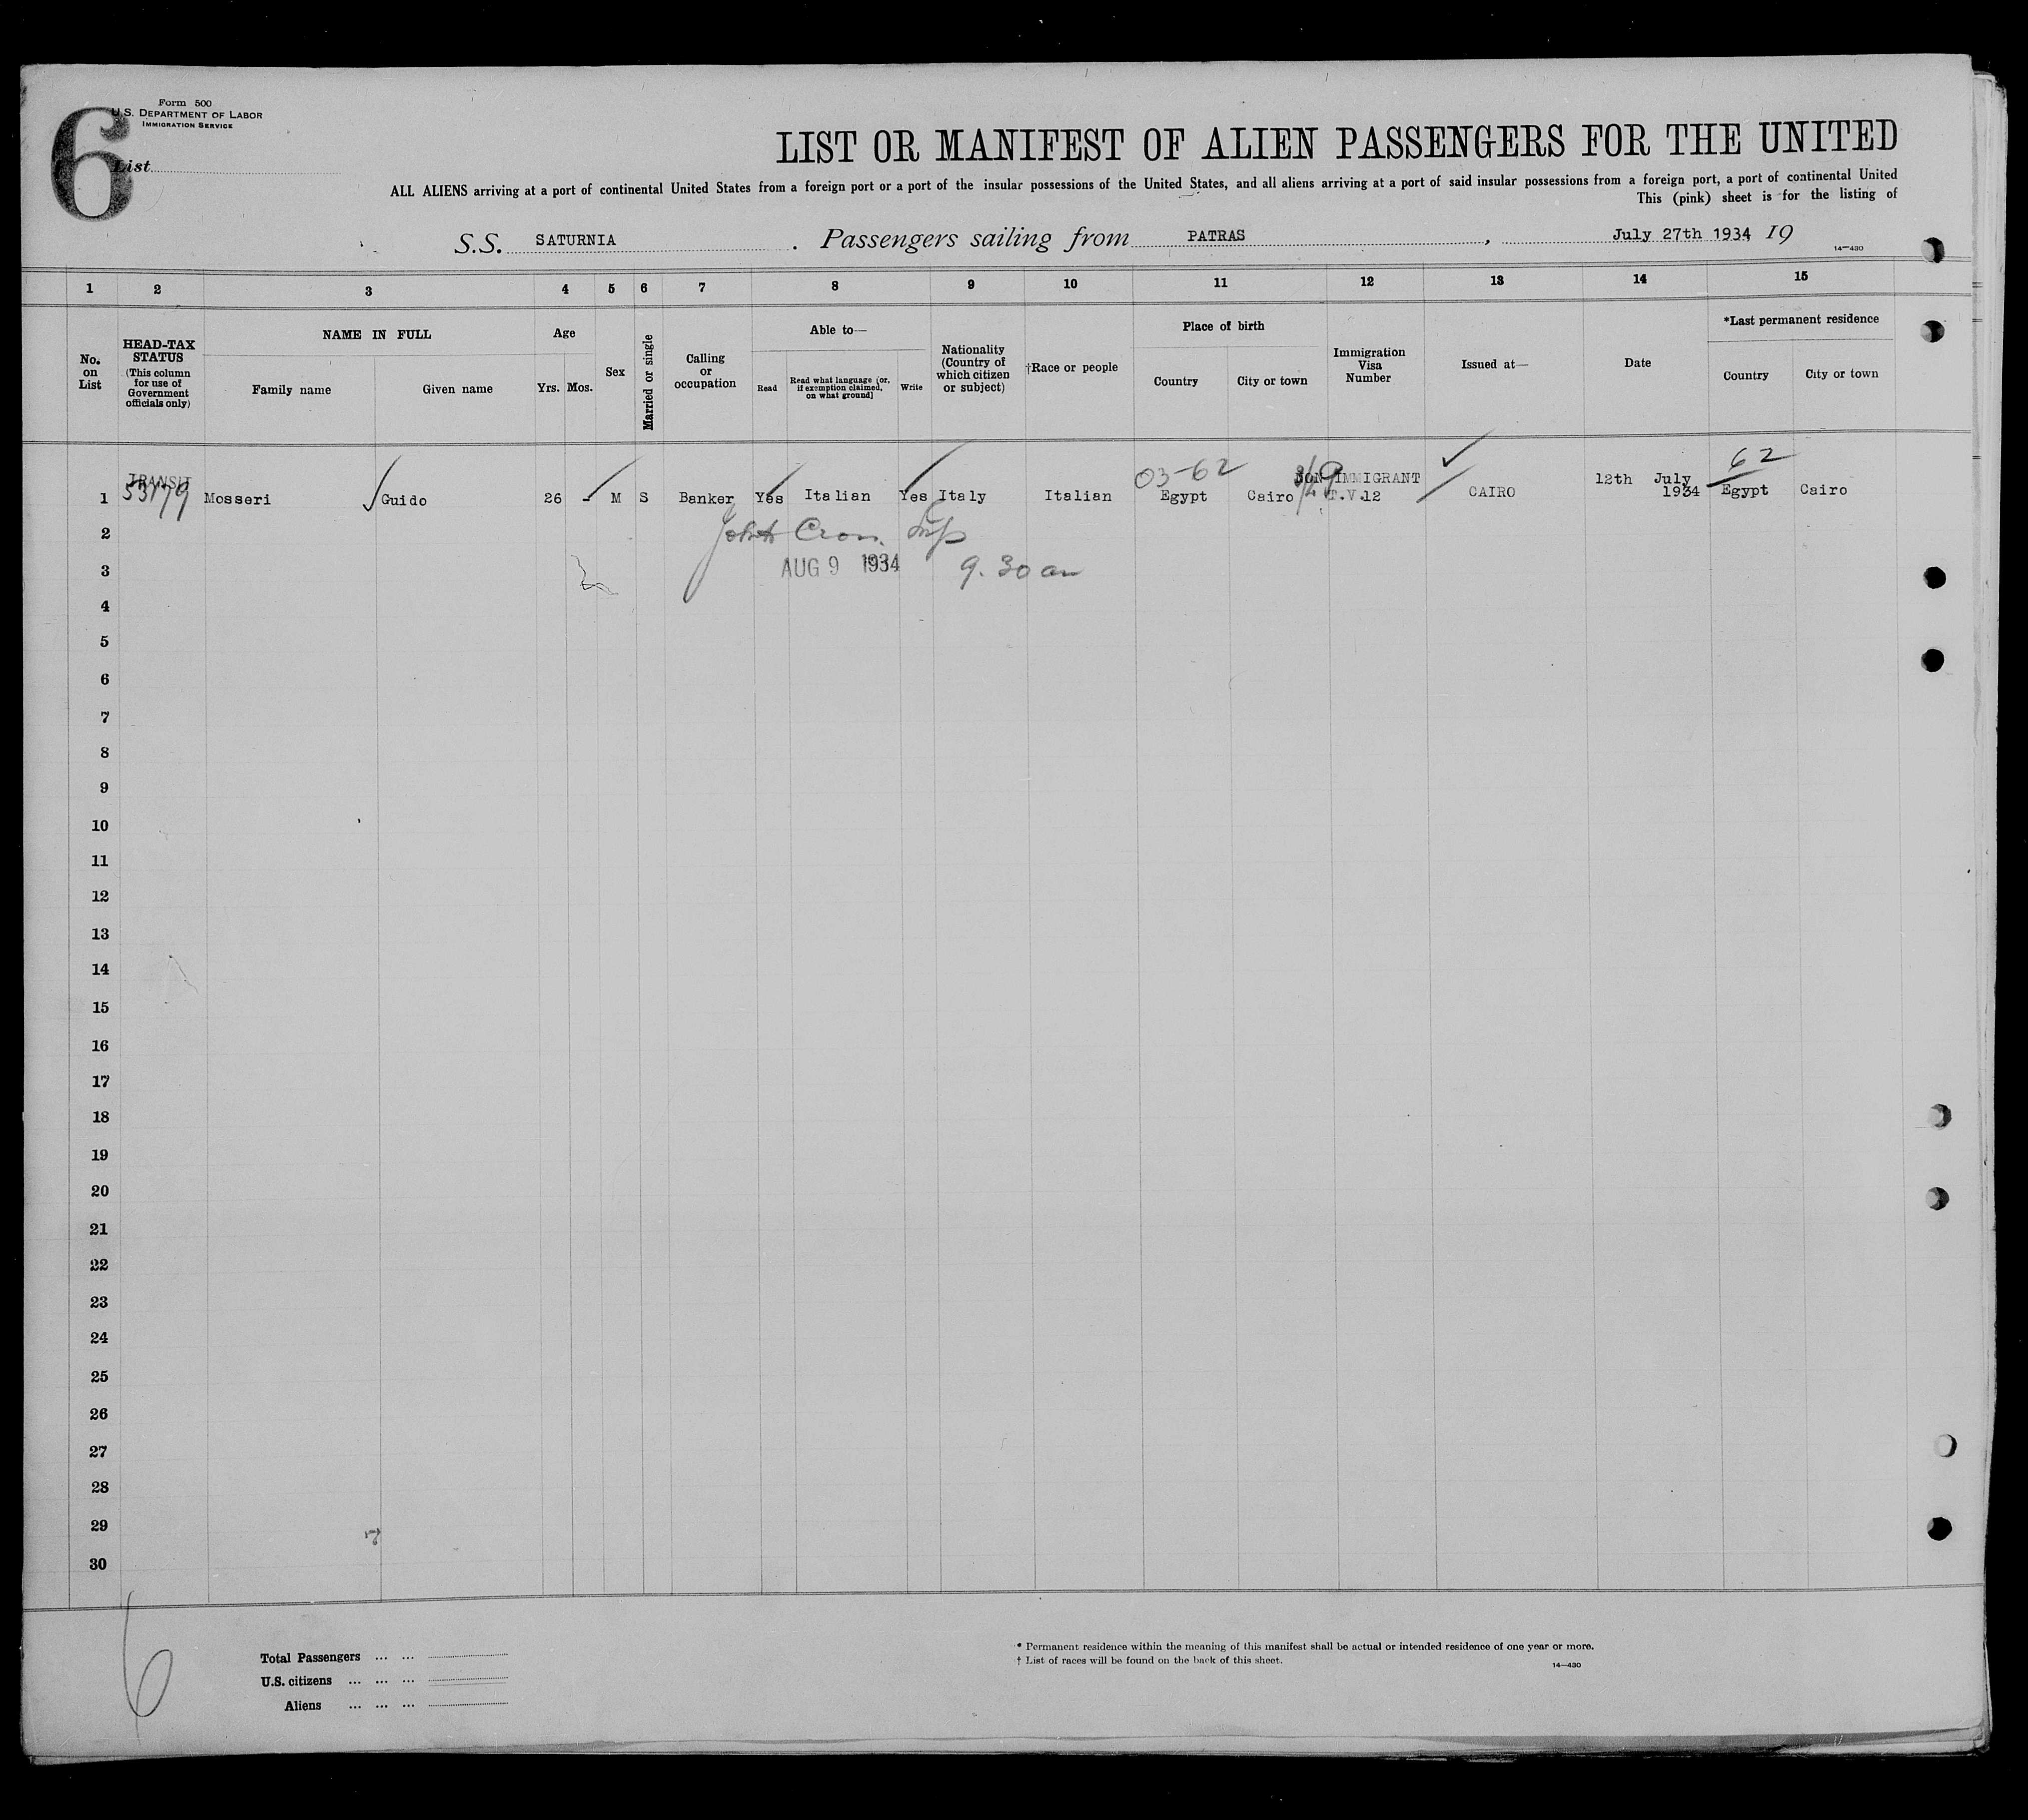 6
Form 500
U.S. DEPARTMENT OF LABOR
IMMIGRATION SERVICE
List
LIST OR MANIFEST OF ALIEN PASSENGERS FOR THE UNITED
ALL ALIENS arriving at a port of continental United States from a foreign port or a port of the insular possessions of the United States, and all aliens arriving at a port of said insular possessions from a foreign port, a port of continental United
This (pink) sheet is for the listing of
S.S. SATURNIA . Passengers sailing from PATRAS , July 27th 1934 19
14—430
1 2 3 4 5 6 7 8 9 10 11 12 13 14 15
No. on List
HEAD-TAX STATUS
(This column for use of Government officials only)
NAME IN FULL
Family name Given name
Age
Yrs. Mos.
Sex
Married or single
Calling or occupation
Able to—
Read
Read what language (or, if exemption claimed, on what ground)
Write
Nationality (Country of which citizen or subject)
†Race or people
Place of birth
Country City or town
Immigration Visa Number
Issued at—
Date
*Last permanent residence
Country City or town
03-62
62
TRANSIT
53179
1 Mosseri Guido 26 - M S Banker Yes Italian Yes Italy Italian Egypt Cairo IMMIGRANT T.V.12 CAIRO 12th July 1934 Egypt Cairo
2
3 AUG 9 1934 9.30 am
4
5
6
7
8
9
10
11
12
13
14
15
16
17
18
19
20
21
22
23
24
25
26
27
28
29
30
6
Total Passengers ... ...
U.S. citizens ... ... ...
Aliens ... ... ...
* Permanent residence within the meaning of this manifest shall be actual or intended residence of one year or more.
† List of races will be found on the back of this sheet.
14—430